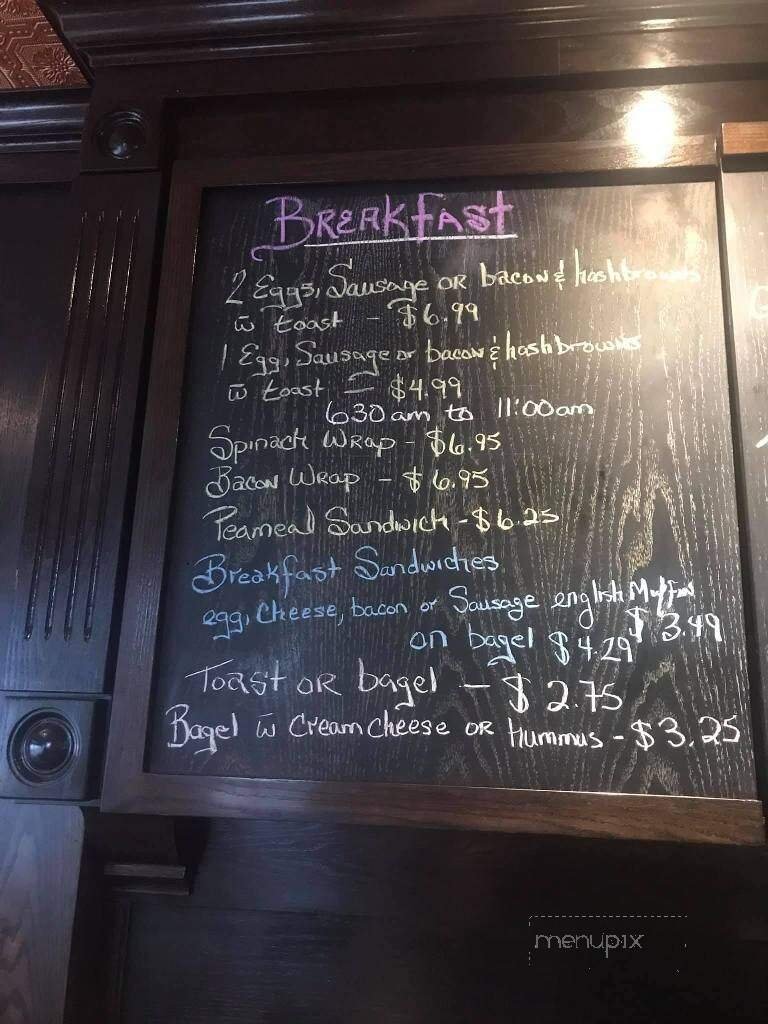 BREAKFAST
2 Eggs, Sausage OR bacon & hashbrowns
w̄ toast - $6.99
1 Egg, Sausage or bacon & hashbrowns
w̄ toast - $4.99
630 am to 11:00am
Spinach WRap - $6.95
Bacon WRap - $6.95
Peameal Sandwich - $6.25
Breakfast Sandwiches
egg, Cheese, bacon or Sausage english Muffin $3.49
on bagel $4.29
Toast OR bagel - $2.75
Bagel w̄ Cream Cheese OR Hummus - $3.25
menupix